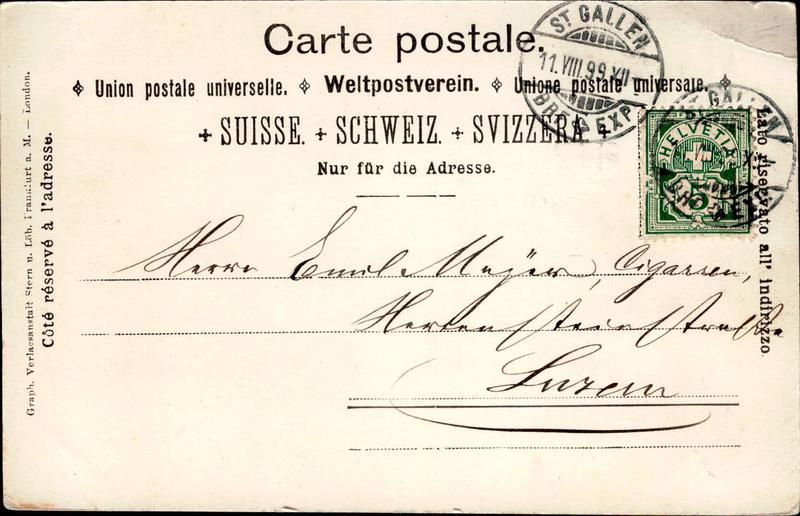 Carte postale.
Union postale universelle. Weltpostverein. Unione postale universale.
+ SUISSE. + SCHWEIZ. + SVIZZERA. +
Nur für die Adresse.
Côté réservé à l'adresse.
Lato riservato all' indirizzo.
Graph. Verlagsanstalt Stern u. Löb, Frankfurt a. M. — London.
ST GALLEN
11.VIII.99.XII-
BRF. EXP.
HELVETIA
5
Herrn Emil Meÿer, Cigarren,
Hertensteinstraße
Luzern